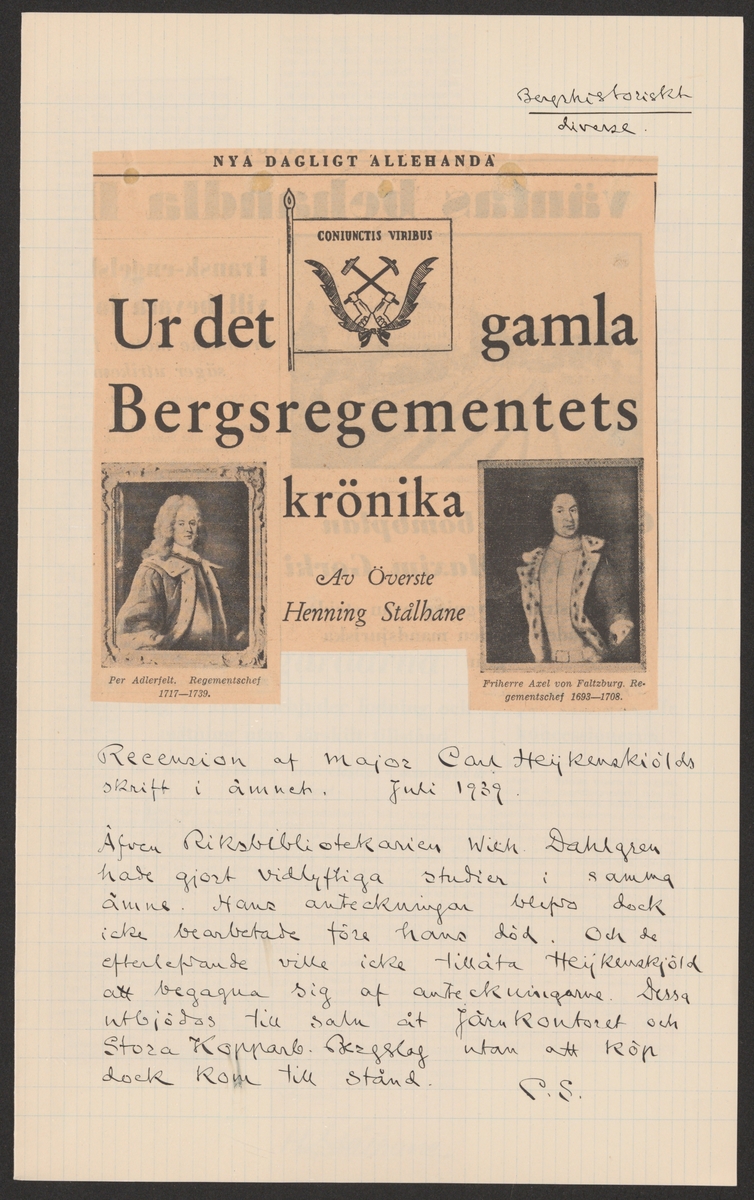 Bergshistoriskt
diverse.
NYA DAGLIGT ALLEHANDA
CONIUNCTIS VIRIBUS
Ur det gamla
Bergsregementets
krönika
Av Överste
Henning Stålhane
Per Adlerfelt. Regementschef
1717—1739.
Friherre Axel von Faltzburg. Re-
gementschef 1693—1708.
Recension af Major Carl Heijkenskiölds
skrift i ämnet. Juli 1939.
Äfven Riksbibliotekarien Wilh. Dahlgren
hade gjort vidlyftiga studier i samma
ämne. Hans anteckningar blefvo dock
icke bearbetade före hans död. Och de
efterlefvande ville icke tillåta Heijkenskjöld
att begagna sig af anteckningarne. Dessa
utbjödos till salu åt Järnkontoret och
Stora Kopparb. Bergslag utan att köp
dock kom till stånd.
C.S.